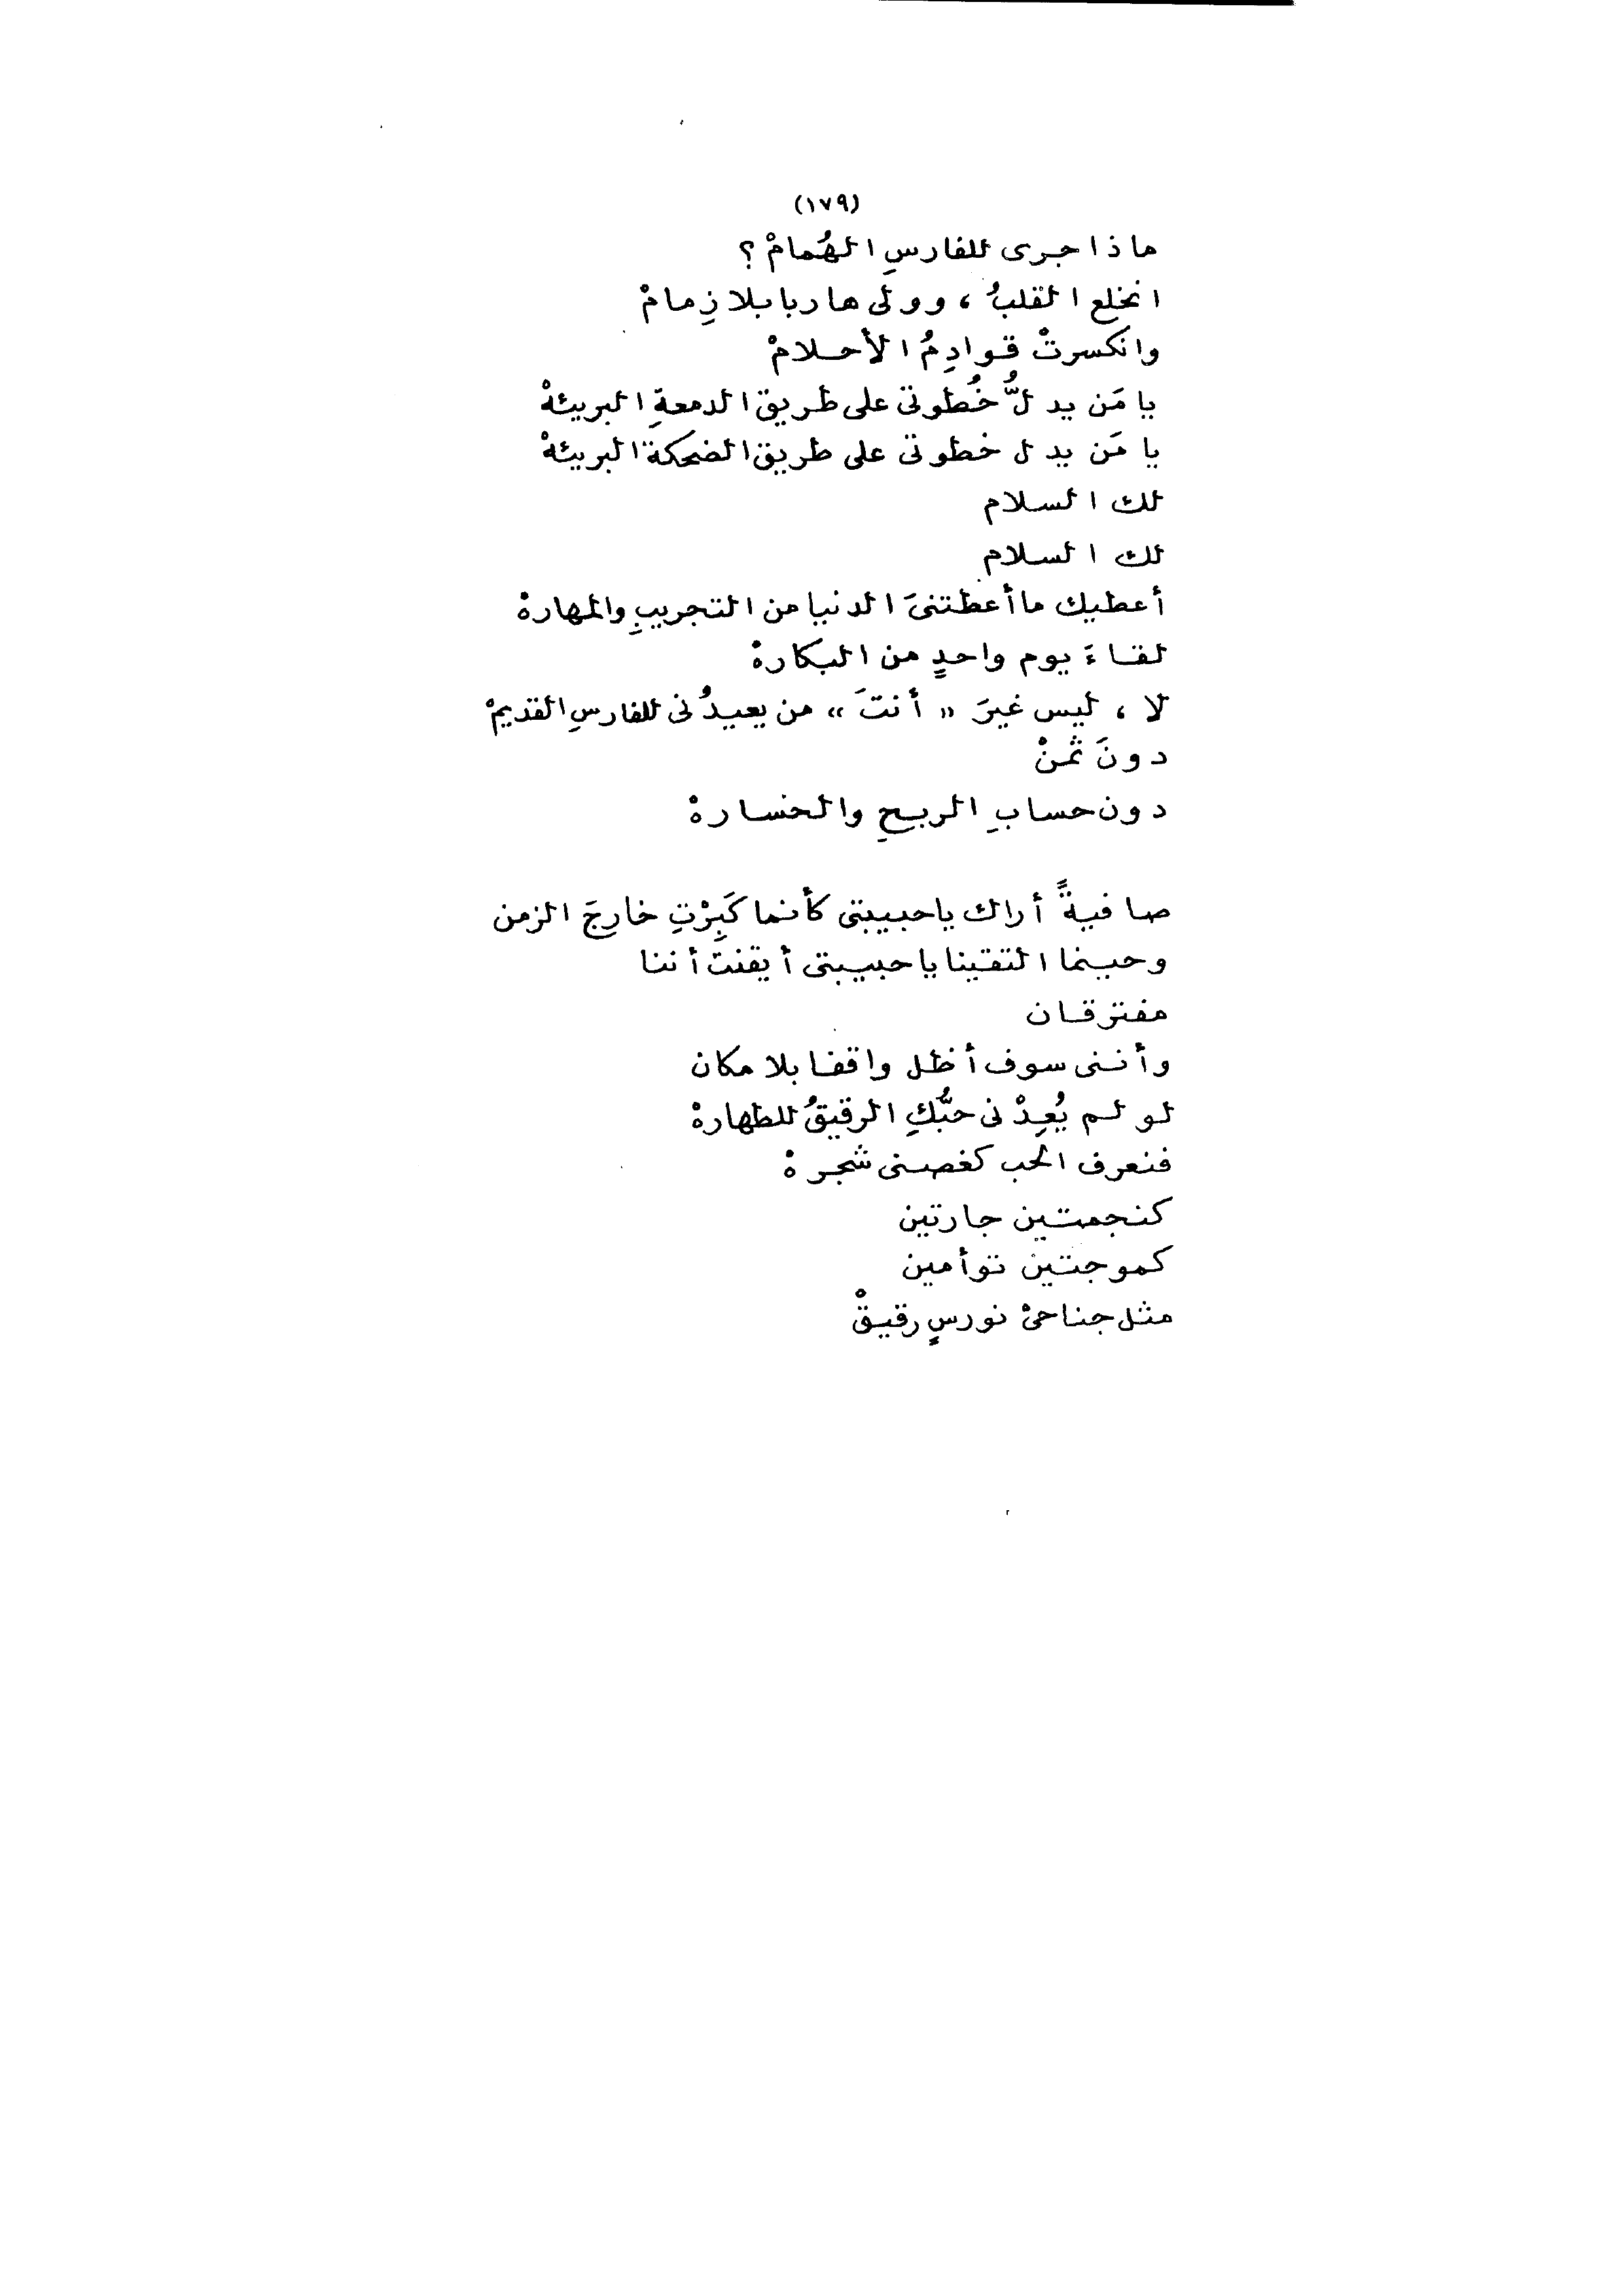 (١٧٩)
ماذا جرى للفارسِ الهُمامْ ؟
انخلع القلبُ ، وولى هاربا بلا زِمامْ
وانكسرتْ قوادِمُ الأحلامْ
يا مَن يدلُّ خُطوتى على طريق الدمعةِ البريئهْ
يا مَن يدل خطوتى على طريق الضحكة البريئهْ
لك السلام
لك السلام
أعطيك ما أعطتنىَ الدنيا من التجريبِ والمهارهْ
لقاءَ يوم واحدٍ من البكارهْ
لا ، ليس غيرَ « أنتَ » من يعيدُنى للفارسِ القديمْ
دونَ ثمنْ
دون حسابِ الربحِ والخسارهْ
صافيةً أراك يا حبيبتى كأنما كَبِرْتِ خارِجَ الزمن
وحينما التقينا يا حبيبتى أيقنتُ أننا
مفترقان
وأننى سوف أظل واقفا بلا مكان
لو لم يُعِدْنى حبُّكِ الرقيقُ للطهارهْ
فنعرف الحب كغصنى شجرهْ
كنجمتين جارتين
كموجتين توأمين
مثل جناحىْ نورسٍ رقيقْ